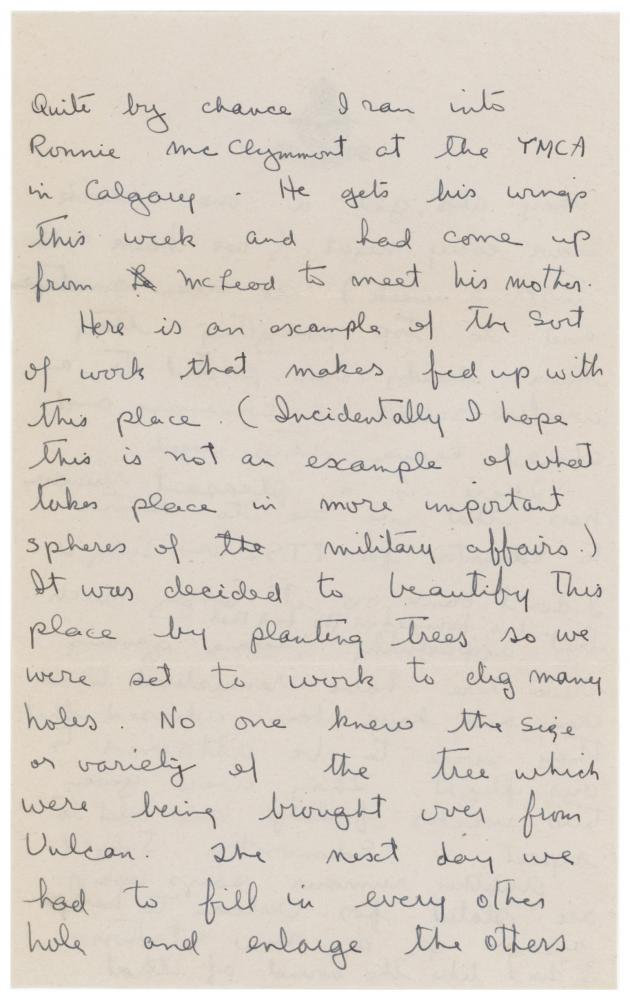 Quite by chance I ran into
Ronnie McClymmont at the YMCA
in Calgary. He gets his wings
this week and had come up
from McLeod to meet his mother.
Here is an example of the sort
of work that makes fed up with
this place. (Incidentally I hope
this is not an example of what
takes place in more important
spheres of the military affairs.)
It was decided to beautify this
place by planting trees so we
were set to work to dig many
holes. No one knew the size
or variety of the tree which
were being brought over from
Vulcan. The next day we
had to fill in every other
hole and enlarge the others